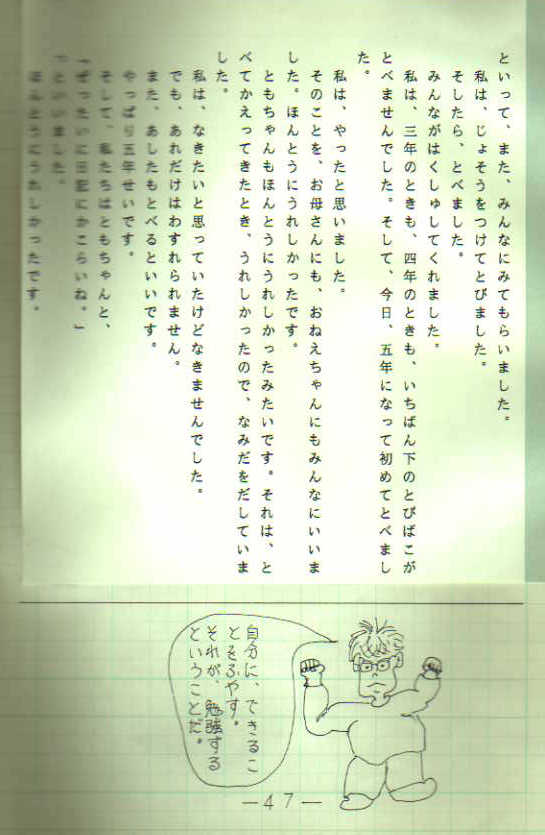 といって、また、みんなにみてもらいました。
私は、じょそうをつけてとびました。
そしたら、とべました。
みんながはくしゅしてくれました。
私は、三年のときも、四年のときも、いちばん下のとびばこが
とべませんでした。そして、今日、五年になって初めてとべまし
た。
私は、やったと思いました。
そのことを、お母さんにも、おねえちゃんにもみんなにいいま
した。ほんとうにうれしかったです。
ともちゃんもほんとうにうれしかったみたいです。それは、と
べてかえってきたとき、うれしかったので、なみだをだしていま
した。
私は、なきたいと思っていたけどなきませんでした。
でも、あれだけはわすれられません。
また、あしたもとべるといいです。
やっぱり五年せいです。
そして、私たちはともちゃんと、
「ぜったいに日記にかこらいね。」
といいました。
ほんとうにうれしかったです。
自分に、できるこ
とをふやす。
それが、勉強する
ということだ。
—47—